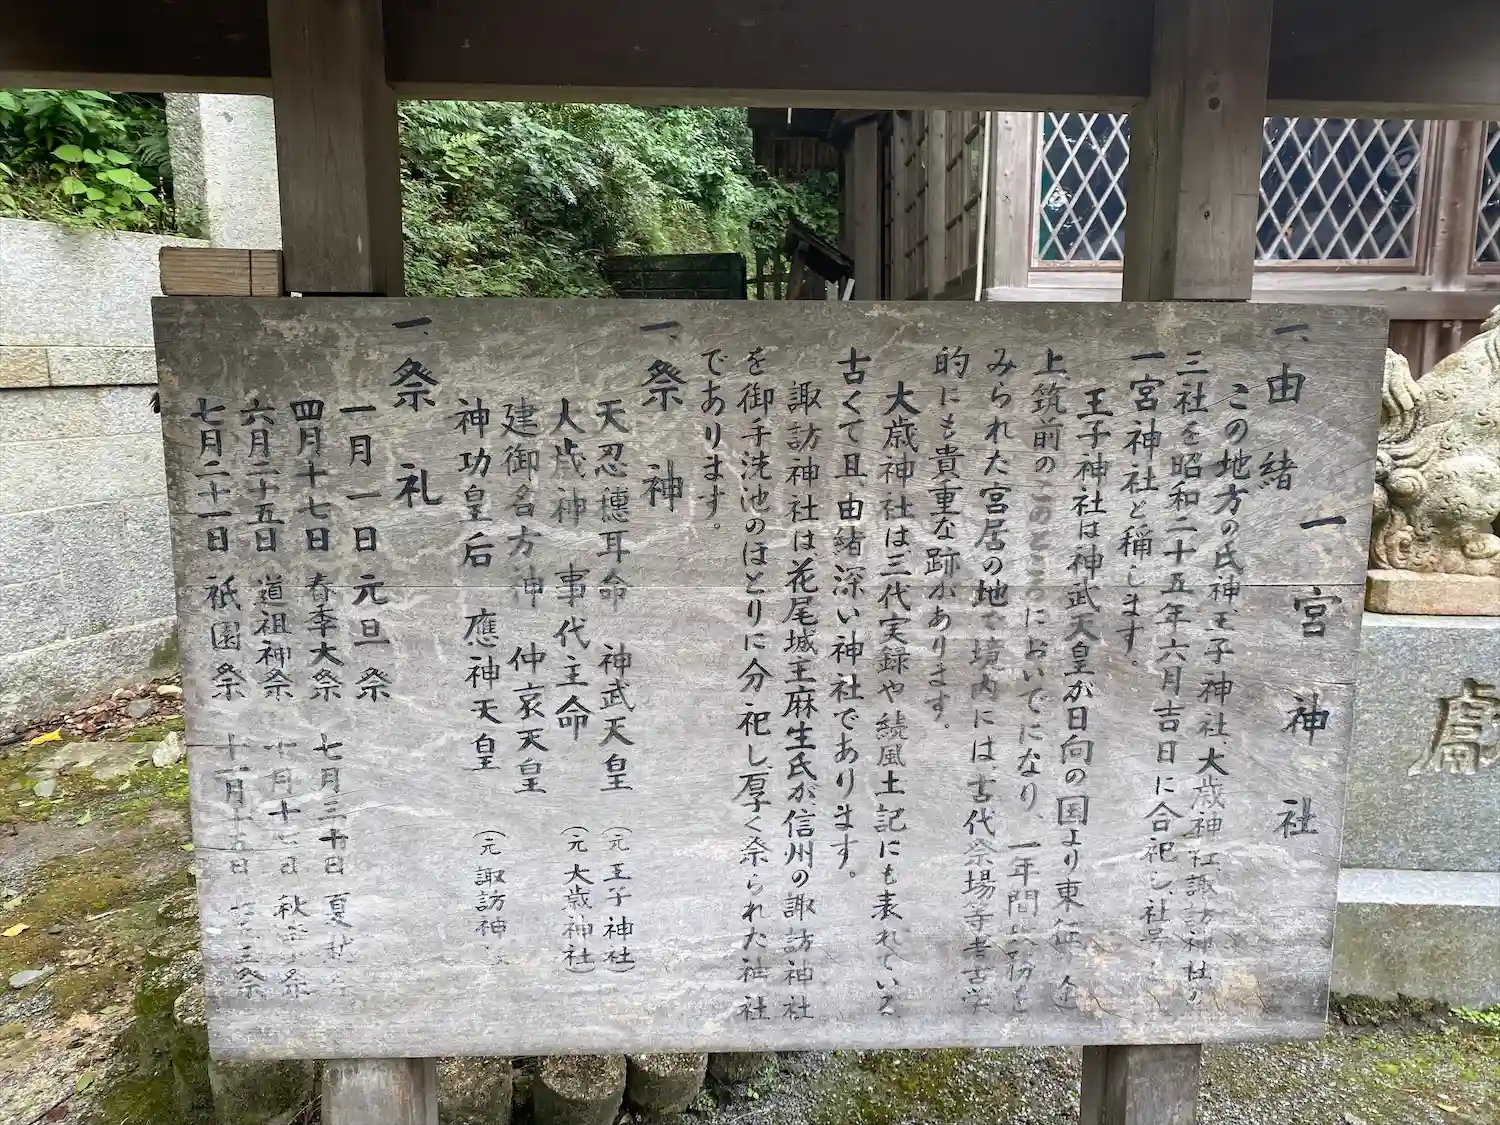 一宮神社
一、由緒
この地方の氏神、王子神社、大歳神社、諏訪神社の
三社を昭和二十五年六月吉日に合祀し社号を
一宮神社と称します。
王子神社は神武天皇が日向の国より東征の
上、筑前のこのところにおいでになり、一年間
みられた宮居の地で境内には古代祭場等考古学
的にも貴重な跡があります。
大歳神社は三代実録や続風土記にも表れている
古くて且由緒深い神社であります。
諏訪神社は花尾城主麻生氏が信州の諏訪神社
を御手洗池のほとりに分祀し厚く祭られた神社
であります。
一、祭神
天忍穂耳命 神武天皇 (元王子神社)
大歳神 事代主命 (元大歳神社)
建御名方神 仲哀天皇
神功皇后 應神天皇 (元諏訪神
一、祭礼
一月一日 元旦祭 七月三十日 夏越
四月十七日 春季大祭 十月十七日 秋季大祭
六月二十五日 道祖神祭 十一月十五日 七五三祭
七月二十一日 祇園祭